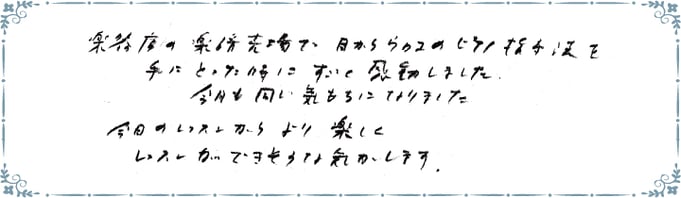 楽器店の楽譜売場で、目からウロコのピアノ指導法を
手にとった時にすごく感動しました。
今日も同じ気もちになりました
今日のレッスンからより楽しく
レッスンができそうな気がします。